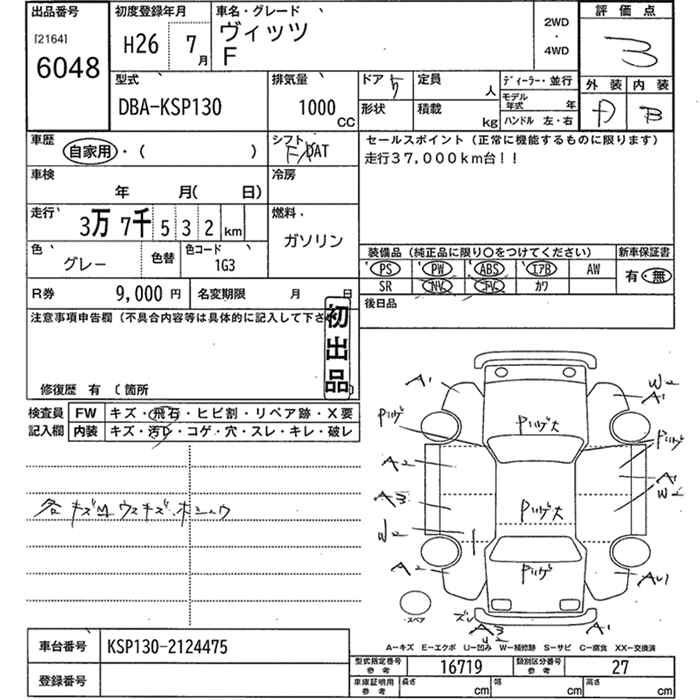 出品番号
[2164]
6048
初度登録年月
H26 7月
車名・グレード
ヴィッツ
F
2WD
・
4WD
評価点
3
外装 内装
B
型式
DBA-KSP130
排気量
1000
CC
ドア 5
形状
定員 人
積載 kg
ディーラー・並行
モデル年式 年
ハンドル 左・右
車歴
自家用・( )
シフト
DAT
セールスポイント(正常に機能するものに限ります)
走行37,000km台!!
車検
年 月( 日)
冷房
走行
3万 7千 5 3 2 km
燃料・
ガソリン
色
グレー
色替
色コード
1G3
装備品(純正品に限り○をつけてください)
PS PW ABS エアB AW
SR NV TV カワ
新車保証書
有・無
R券 9,000円
名変期限 月 日
後日品
注意事項申告欄(不具合内容等は具体的に記入して下さ
初出品
修復歴 有 〔箇所
検査員
記入欄
FW キズ・飛石・ヒビ割・リペア跡・X要
内装 キズ・汚レ・コゲ・穴・スレ・キレ・破レ
A1
W2
A1
A2
A3
W2
A2
A
W2
A3
A1
スペア
A－キズ E－エクボ U－凹み W－補修跡 S－サビ C－腐食 XX－交換済
車台番号 KSP130-2124475
登録番号
型式指定番号
参考
16719
類別区分番号
参考
27
車庫証明用
参考
長さ cm
幅 cm
高さ cm